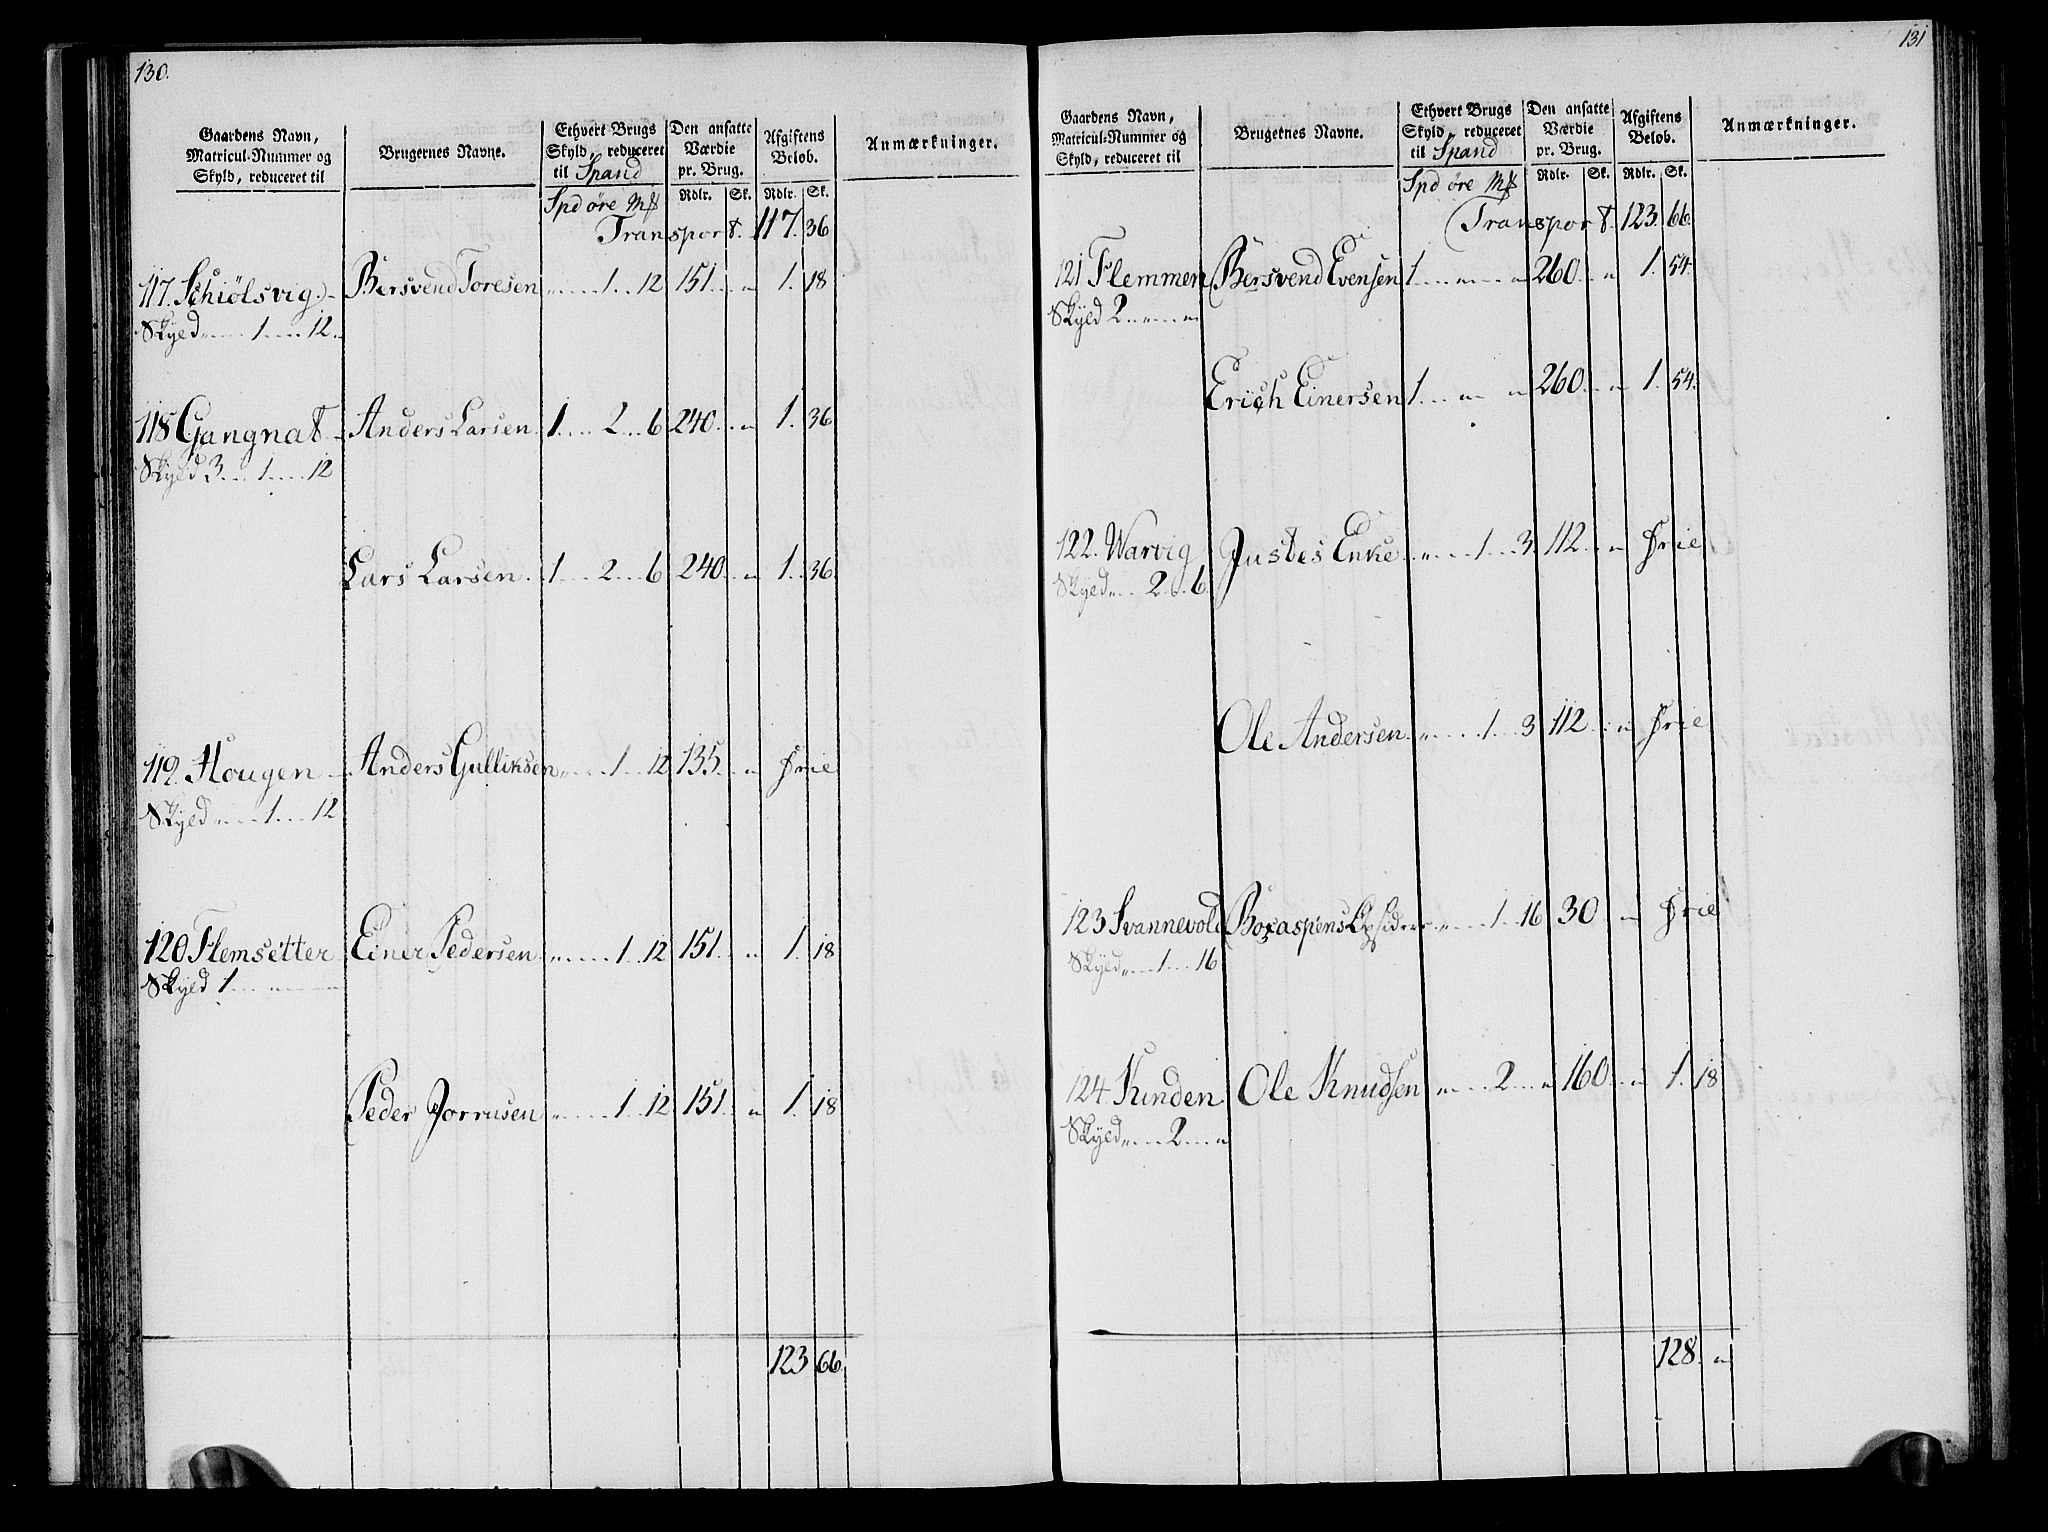 130.
Gaardens Navn, Matricul-Nummer og Skyld, reduceret til | Brugernes Navne. | Ethvert Brugs Skyld, reduceret til Spand | Den ansatte Værdie pr. Brug. | Afgiftens Beløb. | Anmærkninger.
Spd øre | Rdlr. | Sk. | Rdlr. | Sk.
Transport. 117. 36
117. Schiölsvig. Bersvend Toresen " 1 12 151. " 1. 18
Skyld " 1 12.
118 Gangnat Anders Larsen 1 2 6 240. " 1. 36
Skyld 3 1 12
Lars Larsen 1 2 6 240. " 1. 36
119. Hougen Anders Gulliksen " 1 12 135. " Frie
Skyld " 1 12
120 Flemsetter Einer Pedersen " 1 12 151. " 1. 18
Skyld 1 " "
Peder Jorrusen " 1 12 151. " 1. 18
123 66
131
Gaardens Navn, Matricul-Nummer og Skyld, reduceret til | Brugernes Navne. | Ethvert Brugs Skyld, reduceret til Spand | Den ansatte Værdie pr. Brug. | Afgiftens Beløb. | Anmærkninger.
Spd øre | Rdlr. | Sk. | Rdlr. | Sk.
Transport. 123. 66.
121 Flemmen Bersvend Evensen 1 " " 260. " 1. 54.
Skyld 2 " "
Erich Einersen 1 " " 260. " 1. 54.
122. Warvig Justes Enke " 1 3 112. " Frie
Skyld " 2 6.
Ole Andersen " 1 3 112 " Frie
123 Svannevold " 1 16 30 " Frie
Skyld " 1 16
124 Kunden Ole Knudsen " 2 " 160. " 1. 18
Skyld " 2 "
128. "